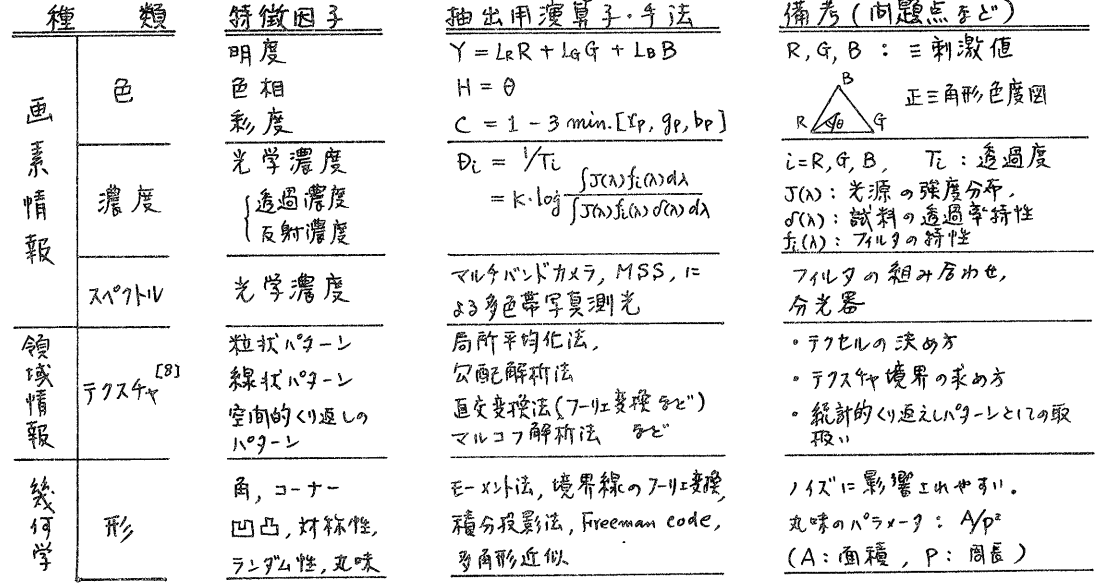 種 類 特徴因子 抽出用演算子・手法 備考(問題点など)
画素情報
色
明度 Y = LRR + LGG + LBB R, G, B : 三刺激値
色相 H = θ
彩度 C = 1 - 3 min.[rp, gp, bp]
B
R θ G
正三角形色度図
濃度
光学濃度
透過濃度
反射濃度
Di = 1/Ti
= K・log ∫J(λ)fi(λ)dλ / ∫J(λ)fi(λ)δ(λ)dλ
i=R,G,B, Ti : 透過度
J(λ) : 光源の強度分布,
δ(λ) : 試料の透過率特性
fi(λ) : フィルタの特性
スペクトル
光学濃度
マルチバンドカメラ, MSS, に
よる多色帯写真測光
フィルタの組み合わせ,
分光器
領域情報
テクスチャ[8]
粒状パターン
線状パターン
空間的くり返しの
パターン
局所平均化法,
勾配解析法
直交変換法(フーリエ変換など)
マルコフ解析法 など
・テクセルの決め方
・テクスチャ境界の求め方
・統計的くり返えしパターンとしての取
扱い
幾何学
形
角, コーナー
凹凸, 対称性,
ランダム性, 丸味
モーメント法, 境界線のフーリエ変換,
積分投影法, Freeman code,
多角形近似
ノイズに影響されやすい。
丸味のパラメータ : A/p²
(A : 面積, P : 周長)